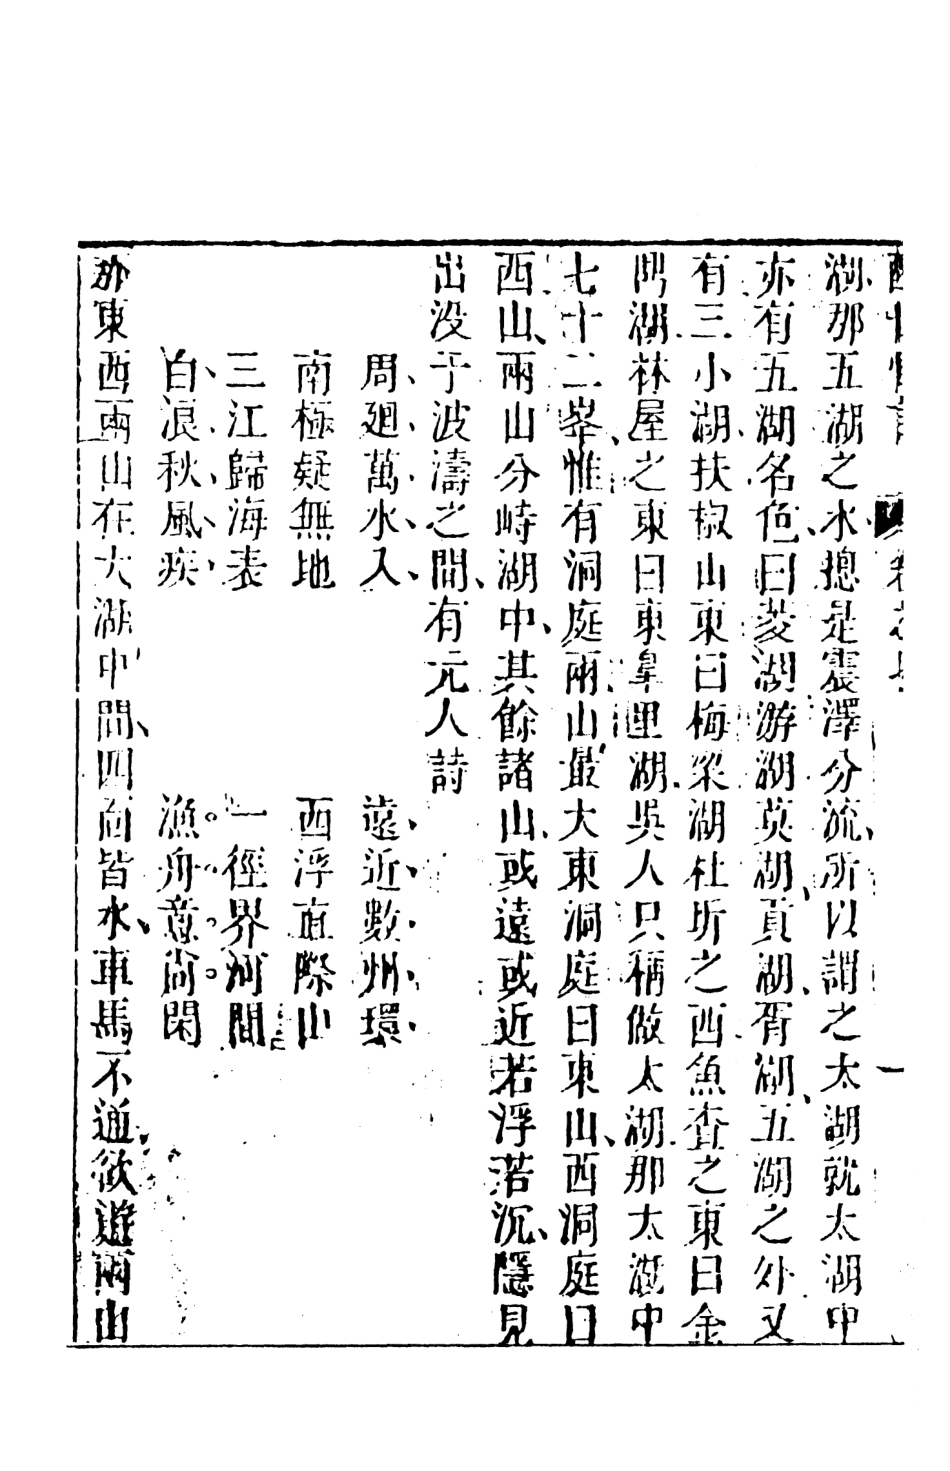 醒世恆言　卷之七　一
湖那五湖之水摠是震澤分流所以謂之太湖就太湖中
亦有五湖名色曰菱湖游湖莫湖貢湖胥湖五湖之外又
有三小湖扶椒山東曰梅梁湖杜圻之西魚查之東曰金
鼎湖林屋之東曰東臯里湖吳人只稱做太湖那太湖中
七十二峯惟有洞庭兩山最大東洞庭曰東山西洞庭曰
西山兩山分峙湖中其餘諸山或遠或近若浮若沉隱見
出没于波濤之間有元人詩
周廻萬水入　遠近數州環
南極疑無地　西浮直際山
三江歸海表　一徑界河間
白浪秋風疾　漁舟意尙閑
那東西兩山在太湖中間四面皆水車馬不通欲遊兩山